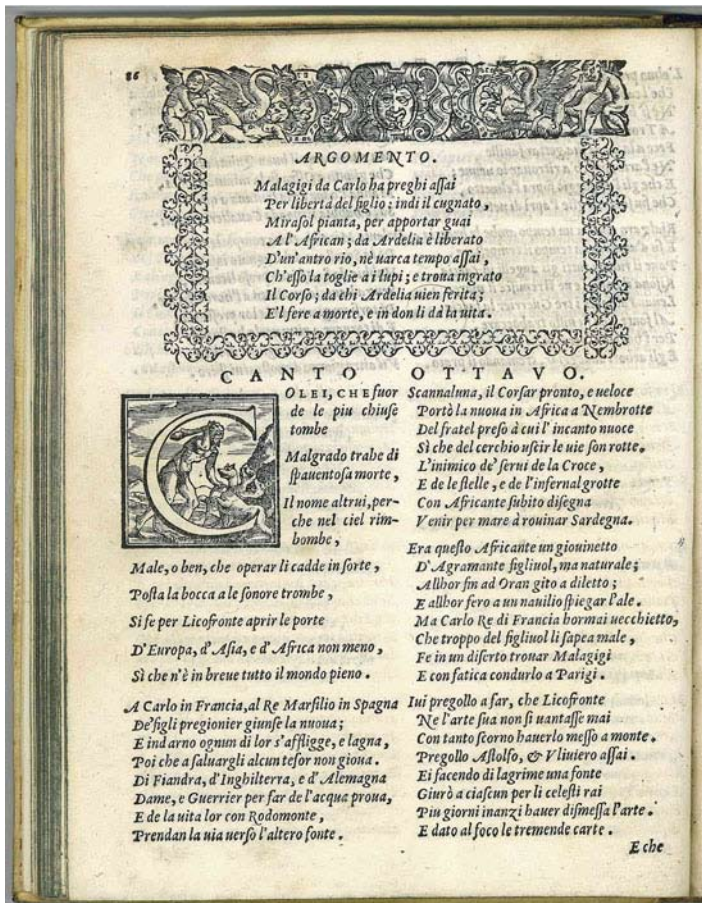 86
ARGOMENTO.
Malagigi da Carlo ha preghi aſſai
Per libertà del figlio: indi il cugnato,
Miraſol pianta, per apportar guai
A l'African; da Ardelia è liberato
D'un'antro rio, nè uarca tempo aſſai,
Ch'eſſo la toglie a i lupi; e troua ingrato
Il Corſo; da chi Ardelia uien ferita;
E'l fere a morte, e in don li dà la uita.
CANTO OTTAVO.
COLEI, CHE fuor
de le piu chiuſe
tombe
Malgrado trahe di
ſpauentoſa morte,
Il nome altrui, per-
che nel ciel rim-
bombe,
Male, o ben, che operar li cadde in ſorte,
Poſta la bocca a le ſonore trombe,
Si ſe per Licofronte aprir le porte
D'Europa, d'Aſia, e d'Africa non meno,
Sì che n'è in breue tutto il mondo pieno.
A Carlo in Francia, al Re Marſilio in Spagna
De'figli pregionier giunſe la nuoua;
E ind arno ognun di lor s'affligge, e lagna,
Poi che a ſaluargli alcun teſor non gioua.
Di Fiandra, d'Inghilterra, e d'Alemagna
Dame, e Guerrier per far de l'acqua proua,
E de la uita lor con Rodomonte,
Prendan la uia uerſo l'altero fonte.
Scannaluna, il Corſar pronto, e ueloce
Portò la nuoua in Africa a Nembrotte
Del fratel preſo à cui l'incanto nuoce
Sì che del cerchio uſcir le uie ſon rotte.
L'inimico de' ſerui de la Croce,
E de le ſtelle, e de l'infernal grotte
Con Africante ſubito diſegna
Venir per mare à rouinar Sardegna.
Era queſto Africante un giouinetto
D'Agramante figliuol, ma naturale;
Allhor fin ad Oran gito a diletto;
E allhor fero a un nauilio ſpiegar l'ale.
Ma Carlo Re di Francia hormai uecchietto,
Che troppo del figliuol li ſapea male,
Fe in un diſerto trouar Malagigi
E con fatica condurlo a Parigi.
Iui pregollo a far, che Licofronte
Ne l'arte ſua non ſi uantaſſe mai
Con tanto ſcorno hauerlo meſſo a monte.
Pregollo Aſtolfo, & Vliuiero aſſai.
Ei facendo di lagrime una fonte
Giurò a ciaſcun per li celeſti rai
Piu giorni inanzi hauer diſmeſſa l'arte.
E dato al foco le tremende carte.
E che